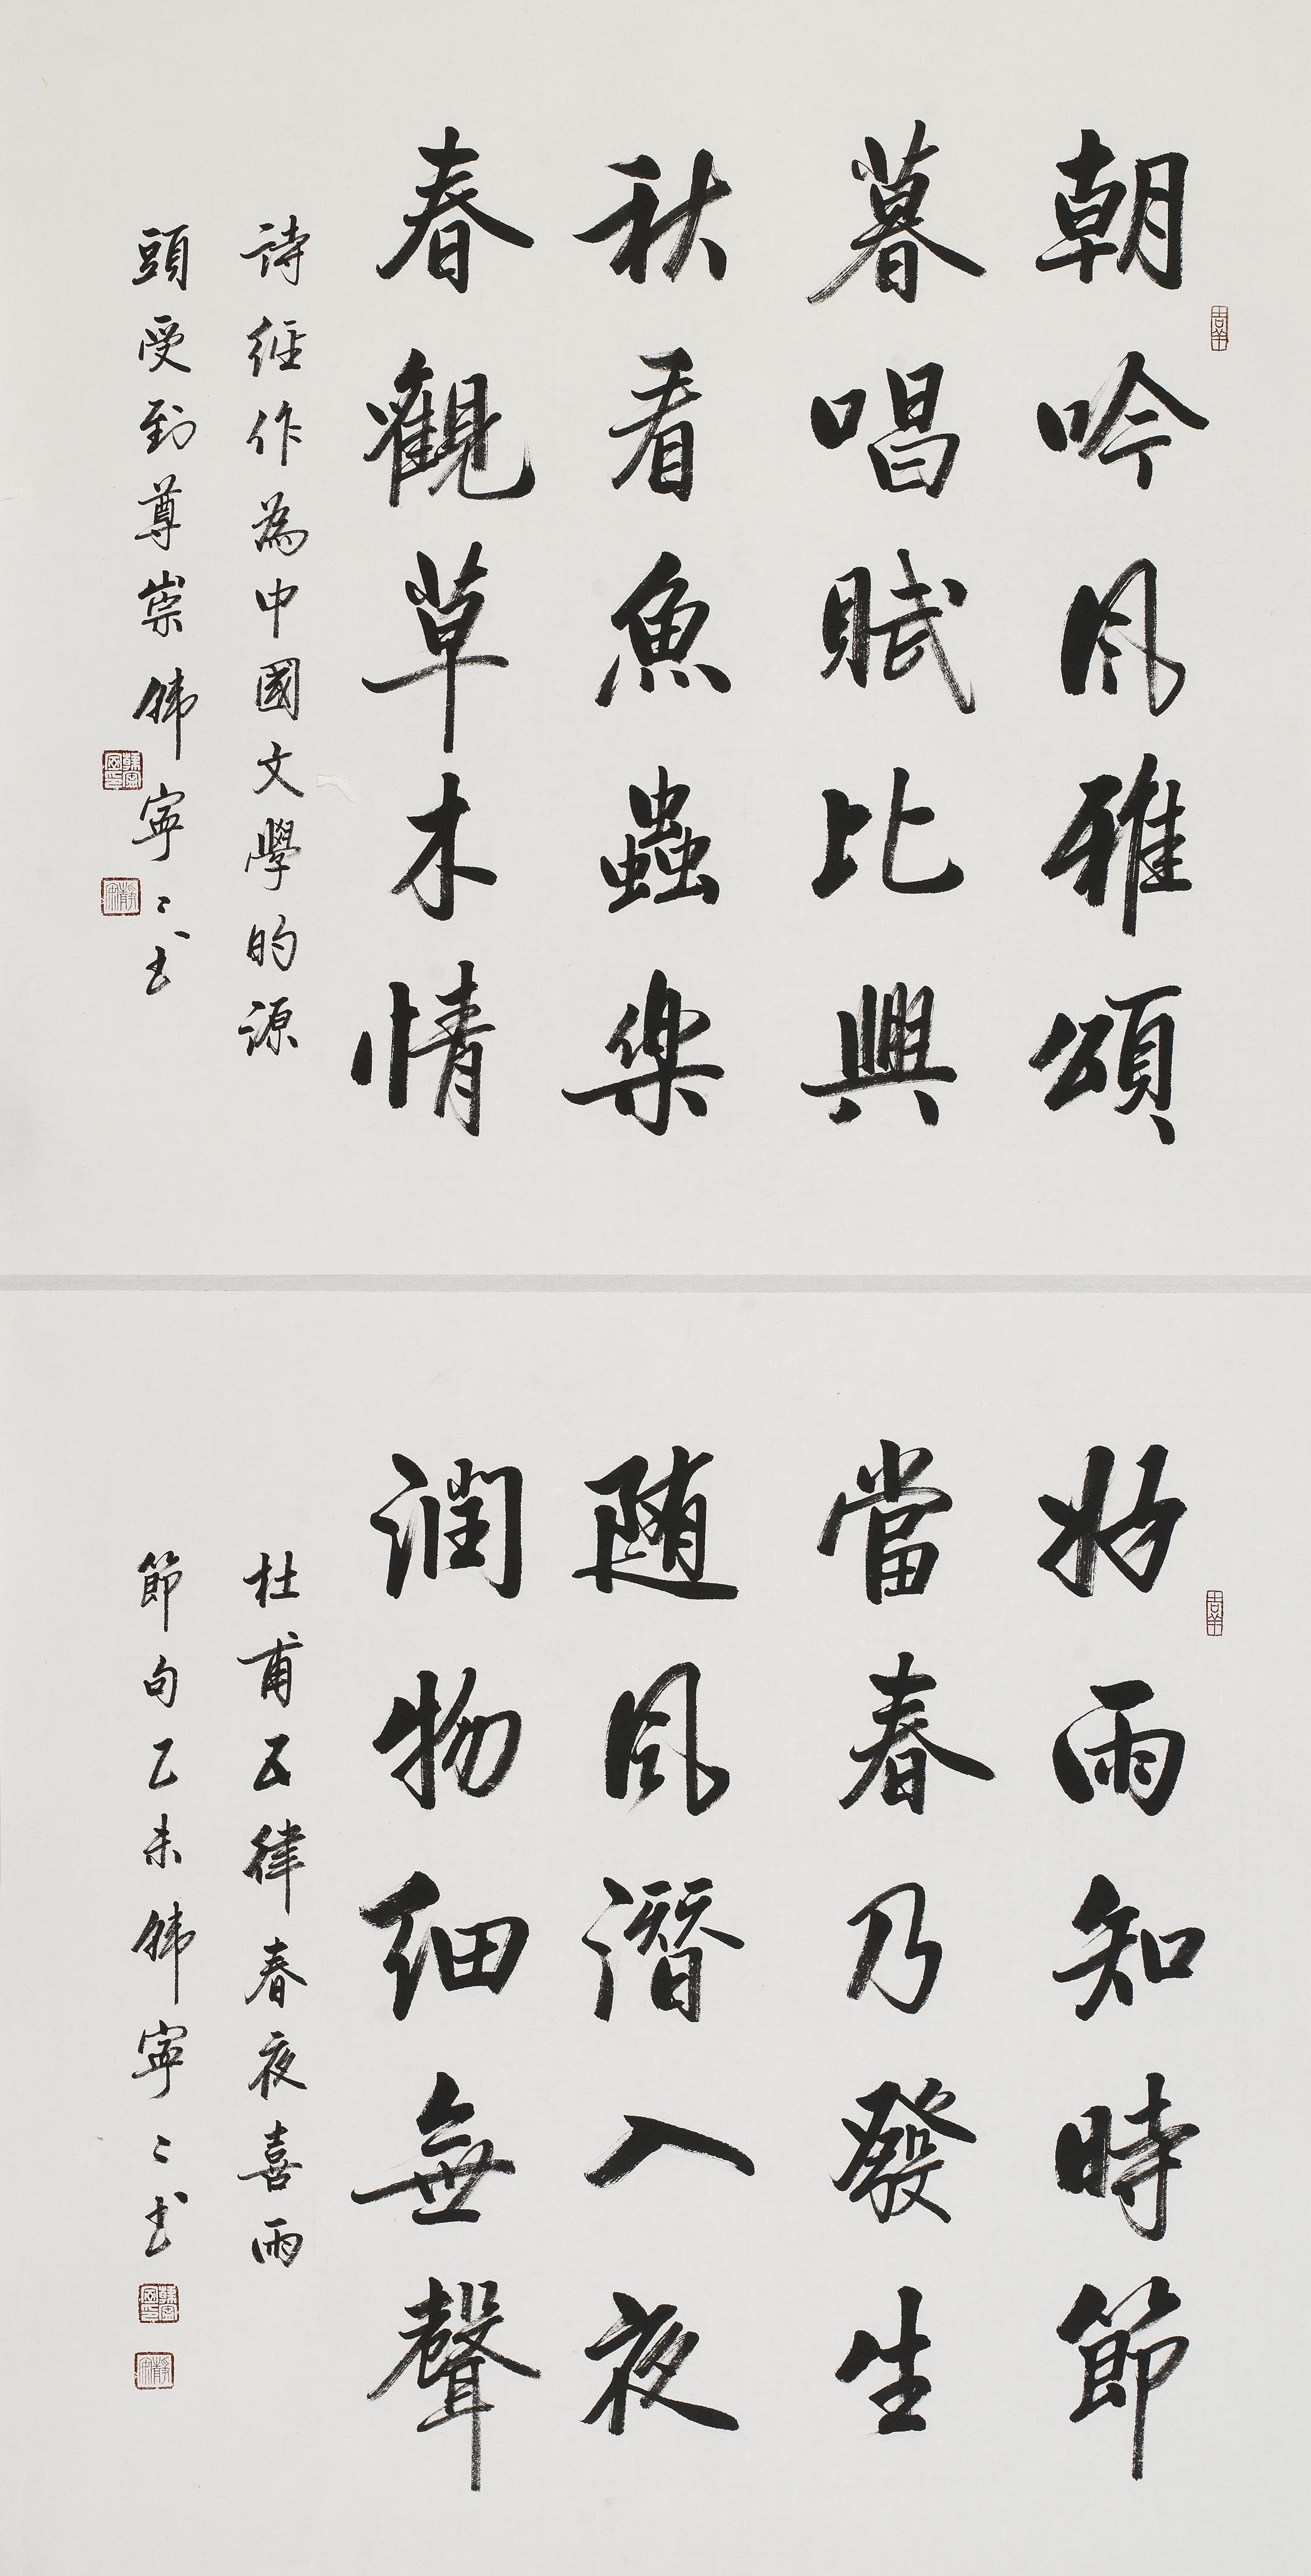 朝吟风雅頌
暮唱賦比興
秋看魚蟲樂
春觀草木情
詩經作為中國文學的源
頭受到尊崇韩寧寧书
好雨知時節
當春乃發生
随风潛入夜
潤物細無聲
杜甫五律春夜喜雨
節句乙未韩寧寧书